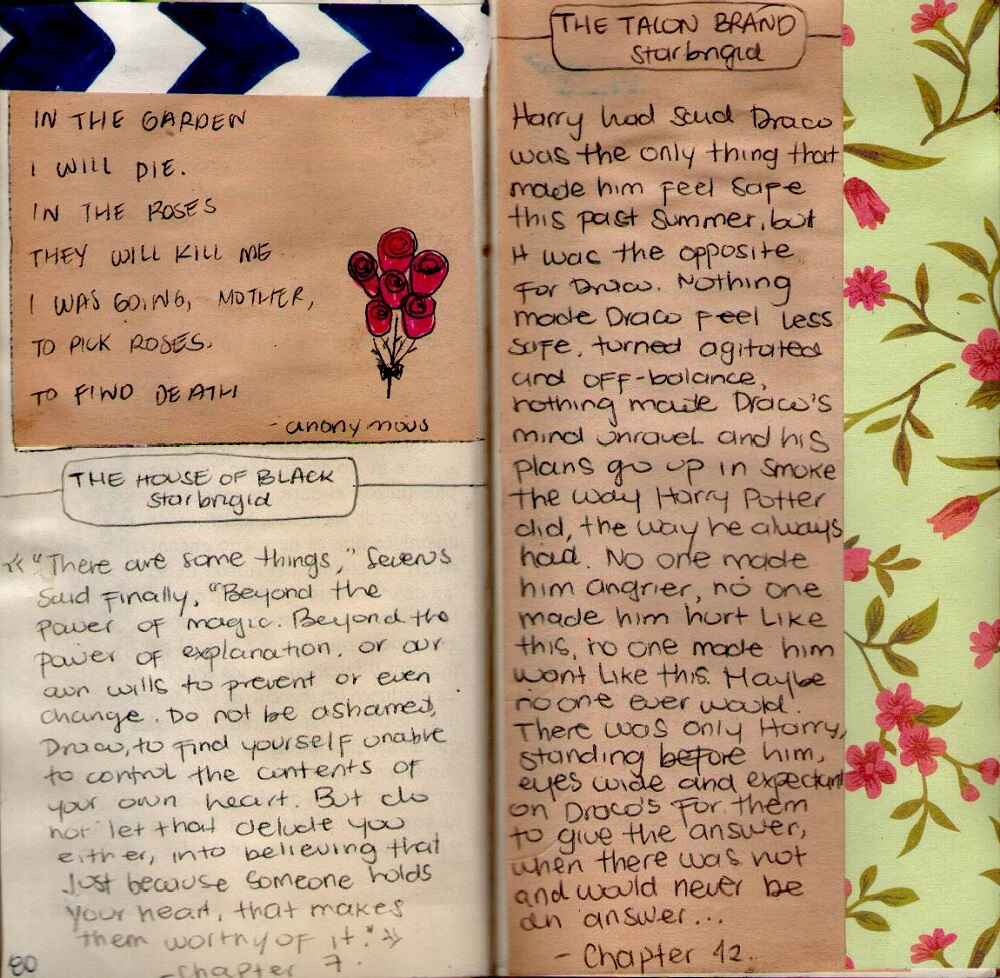 IN THE GARDEN
I WILL DIE.
IN THE ROSES
THEY WILL KILL ME
I WAS GOING, MOTHER,
TO PICK ROSES.
TO FIND DEATH
- anonymous
THE HOUSE OF BLACK
starbrigid
« "There are some things," Severus
said finally, "Beyond the
power of magic. Beyond the
power of explanation, or our
own wills to prevent or even
change. Do not be ashamed,
Draco, to find yourself unable
to control the contents of
your own heart. But do
not let that delude you
either, into believing that
just because someone holds
your heart, that makes
them worthy of it." »
- Chapter 7.
80
THE TALON BRAND
starbrigid
Harry had said Draco
was the only thing that
made him feel safe
this past summer, but
it was the opposite
for Draco. Nothing
made Draco feel less
safe, turned agitated
and off-balance,
nothing made Draco's
mind unravel and his
plans go up in smoke
the way Harry Potter
did, the way he always
had. No one made
him angrier, no one
made him hurt like
this, no one made him
want like this. Maybe
no one ever would.
There was only Harry,
standing before him,
eyes wide and expectant
on Draco's for them
to give the answer,
when there was not
and would never be
an answer...
- Chapter 12.